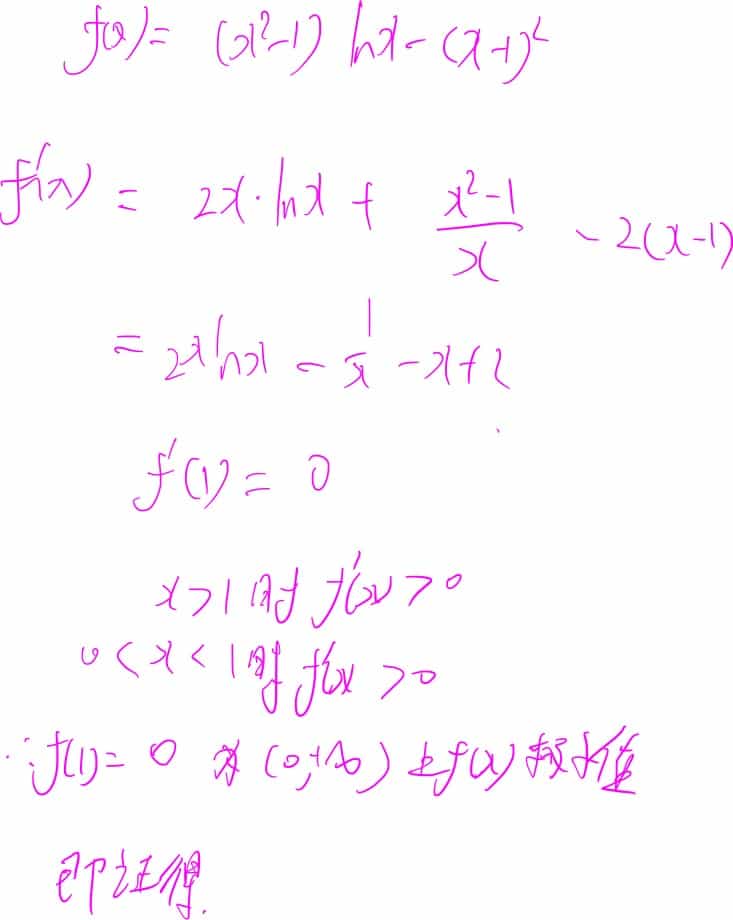 f(x)= (x²-1) lnx - (x-1)²
f'(x) = 2x·lnx + \frac{x²-1}{x} - 2(x-1)
= 2xlnx - \frac{1}{x} - x+2
f'(1)= 0
x>1时 f'(x)>0
0<x<1时 f'(x) >0
∴f(1)= 0 为(0,+∞)上f(x)极小值
即证得.